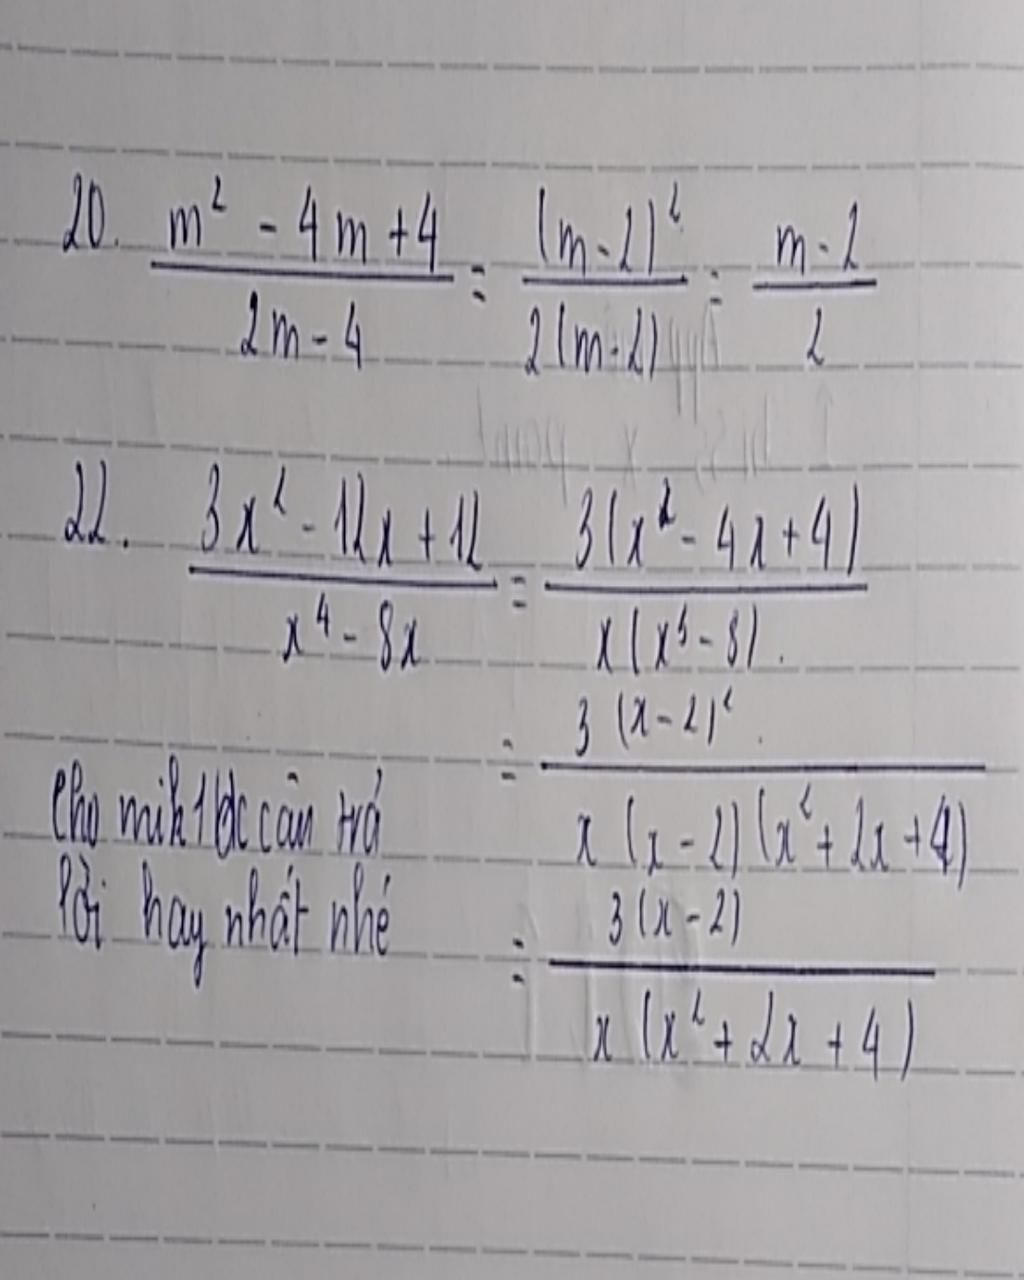 20. (m² - 4m + 4)/(2m - 4) = (m - 2)²/(2(m - 2)) = (m - 2)/2
22. (3x² - 12x + 12)/(x⁴ - 8x) = 3(x² - 4x + 4)/(x(x³ - 8))
= 3(x - 2)²/(x(x - 2)(x² + 2x + 4))
cho mik 1 đc câu trả
lời hay nhất nhé
= 3(x - 2)/(x(x² + 2x + 4))